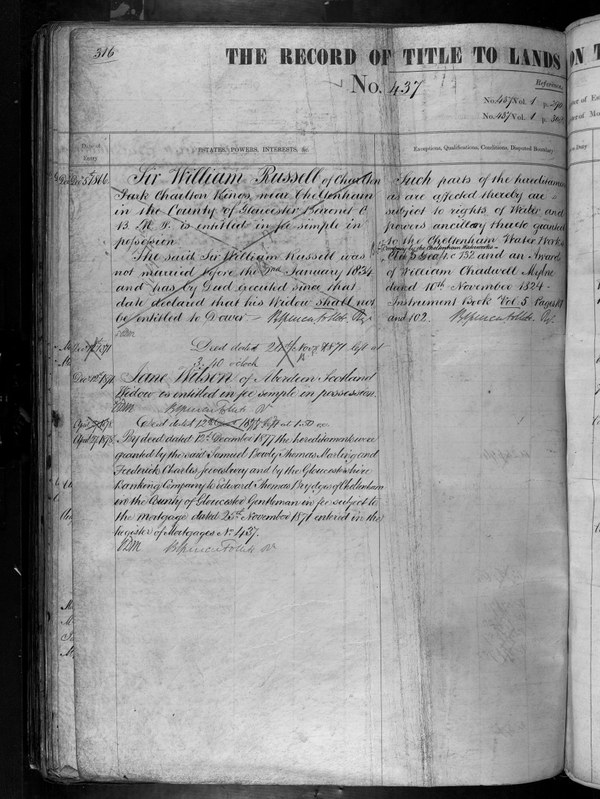 316
THE RECORD OF TITLE TO LANDS
ON T
No. 437
References
No. 437 Vol. 1 p.
No. 437 Vol. 1 p.
Date of Entry
ESTATES, POWERS, INTERESTS, &c.
Exceptions, Qualifications, Conditions, Disputed Boundary
Decr 5th 1866
Sir William Russell of Charlton
Park Charlton Kings, near Cheltenham
in the County of Gloucester Baronet C.
B. M.P. is entitled in fee simple in
possession
The said Sir William Russell was
not married before the 2nd January 1834
and has by Deed executed since that
date declared that his Widow shall not
be entitled to Dower
Deed dated 25th Novr 1871 left at
3.40 o'clock
Decr 1871
Jane Wilson of Aberdeen Scotland
Widow is entitled in fee simple in possession.
Deed dated 12th 1877 left at 1.50
April 27 1878
By deed dated 12th December 1877 the hereditaments were
granted by the said Samuel Bowly Thomas Marling and
Frederick Charles and by the Gloucestershire
Banking Company to Edward Thomas Brydges of Cheltenham
in the County of Gloucester Gentleman in fee subject to
the mortgage dated 25th November 1871 entered in the
Register of Mortgages No. 437.
Such parts of the hereditaments
as are affected thereby are
subject to rights of Water and
powers ancillary thereto granted
to the Cheltenham Water Works
Company by the Cheltenham Waterworks
Act 5 Geo 4 c 132 and an Award
of William Chadwell Mylne
dated 10th November 1824
Instrument Book Vol 5 Pages
and 102.